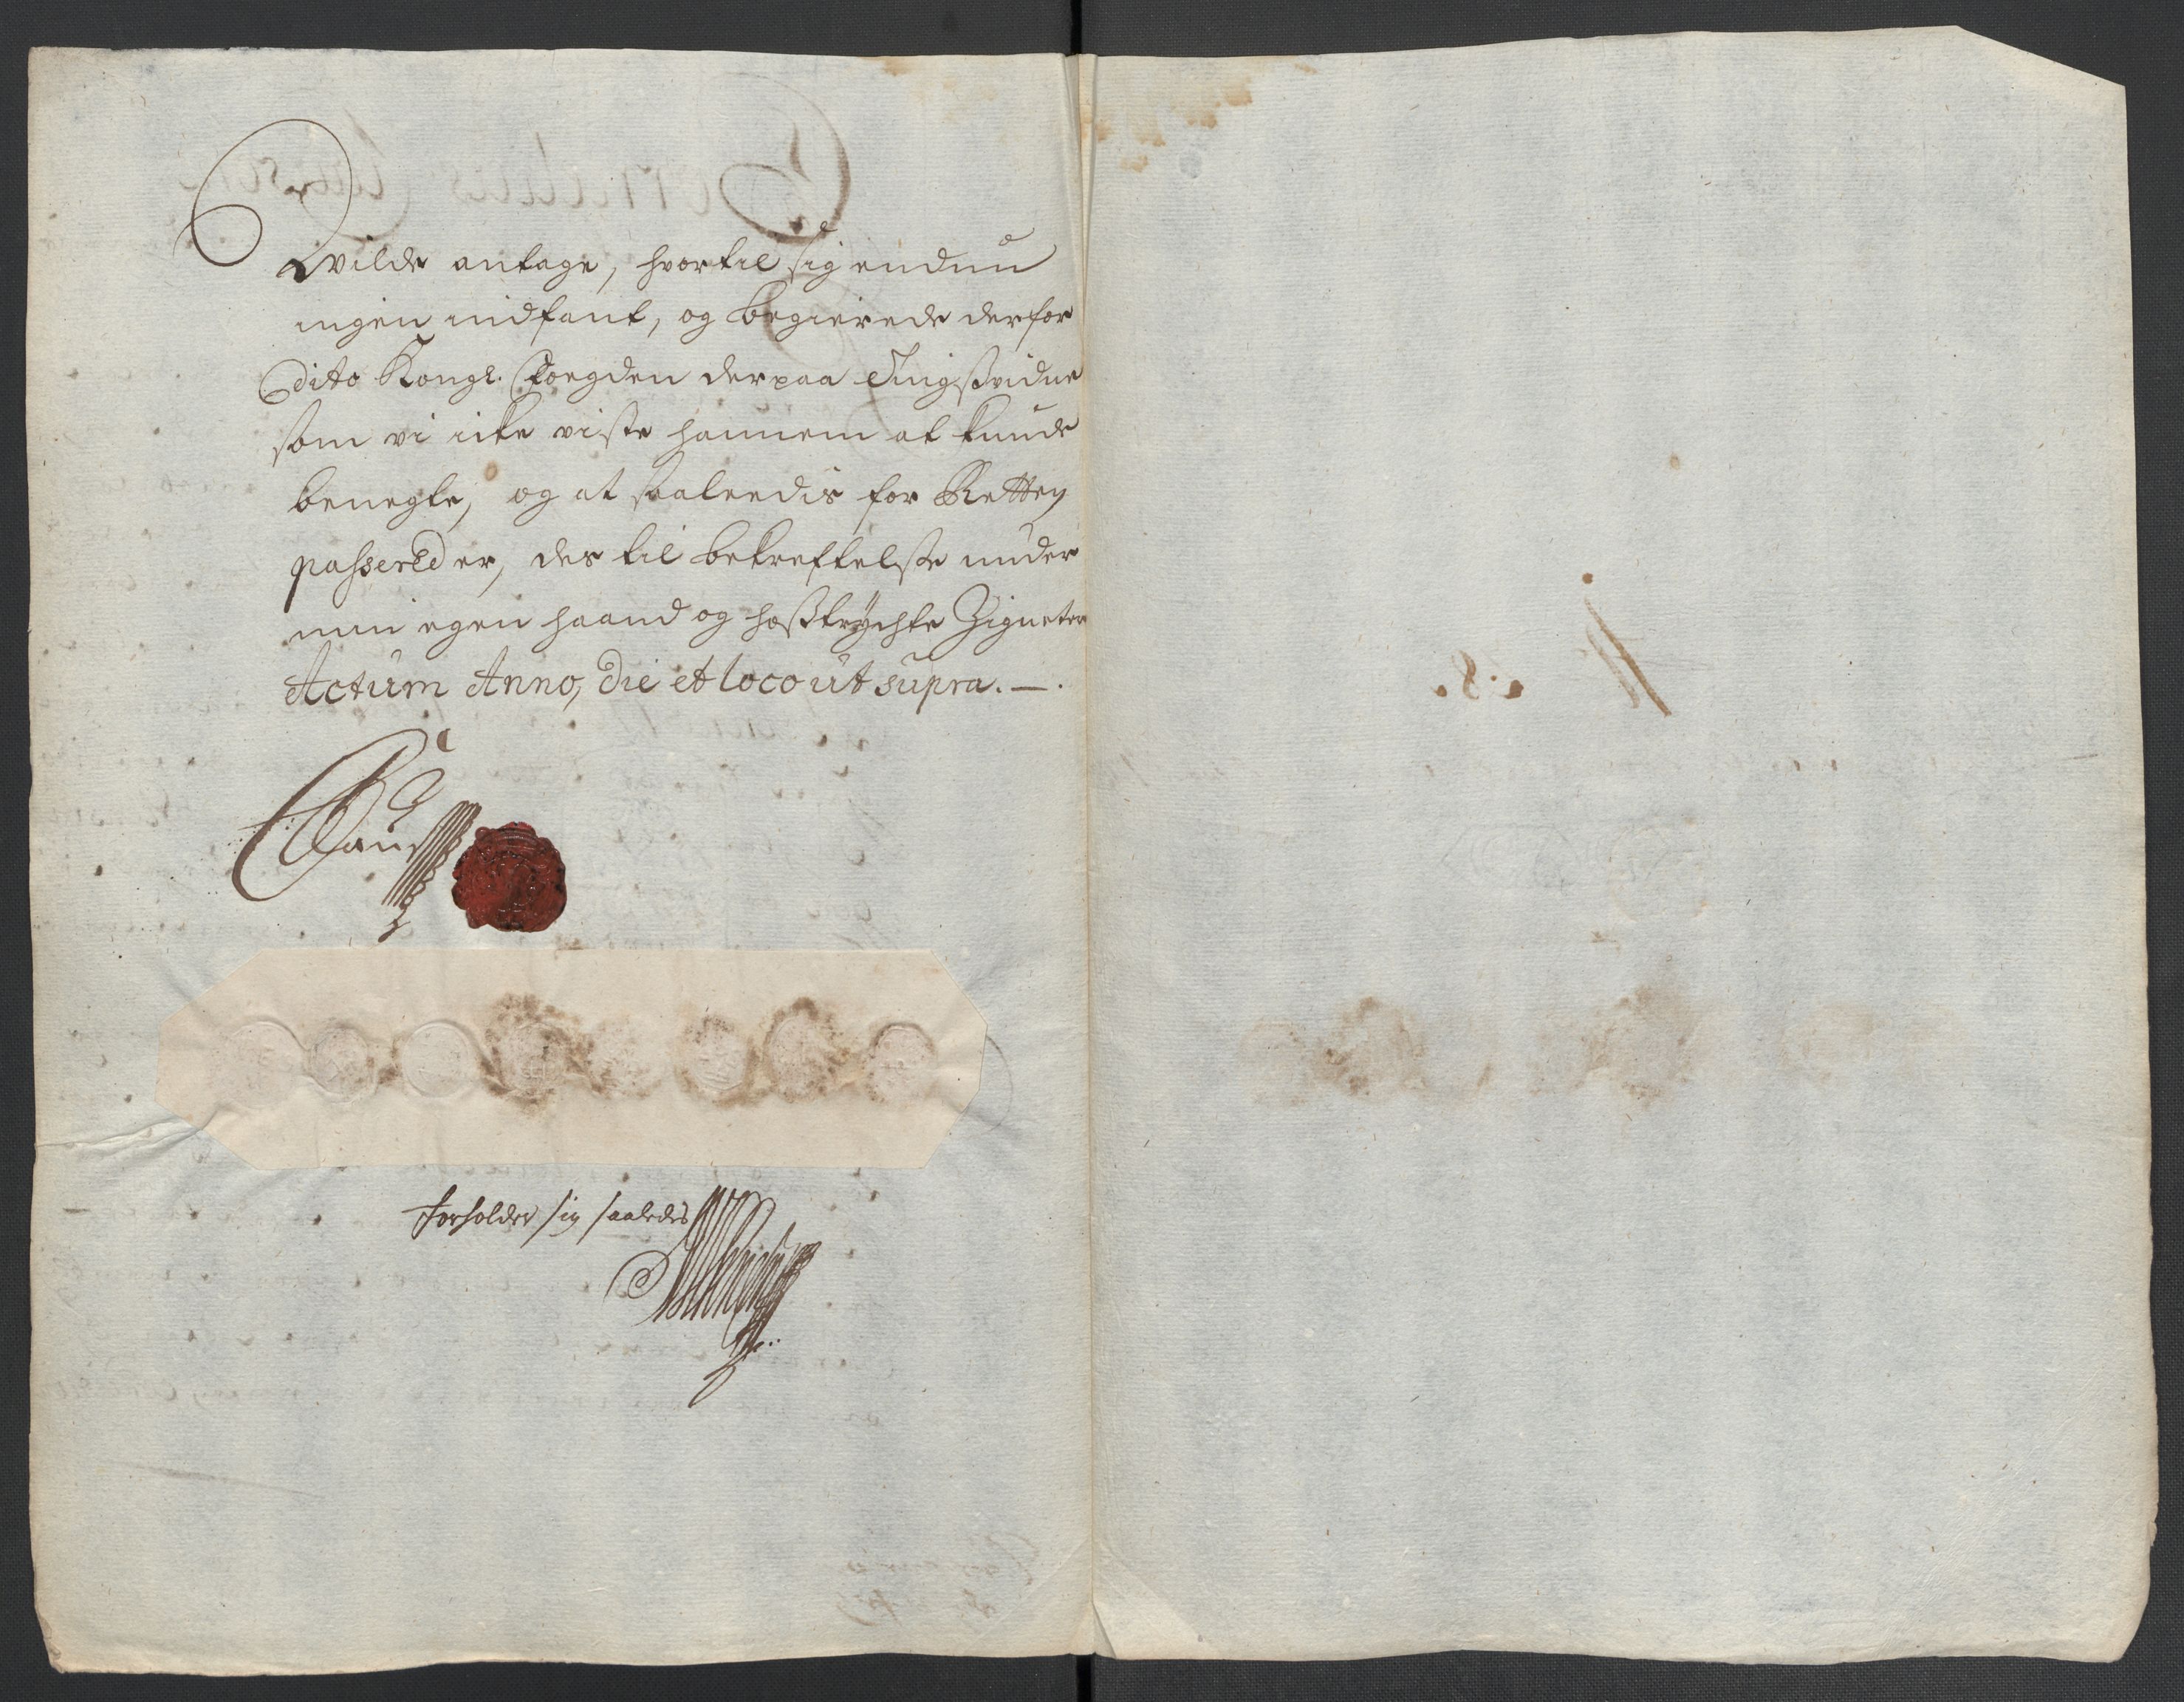 vilde antage, hvortil sig endnu
ingen indfant, og begierede derfor
dito Kongl. Foegden derpaa Tingsvidne
som vi icke viste hannem at kunde
benegte, og at saaleedis for Retten
passered er, des til bekreftelse under
min egen haand og hostrychte Zigneter
Actum Anno, die et loco ut supra. —.
forholder sig saaledes